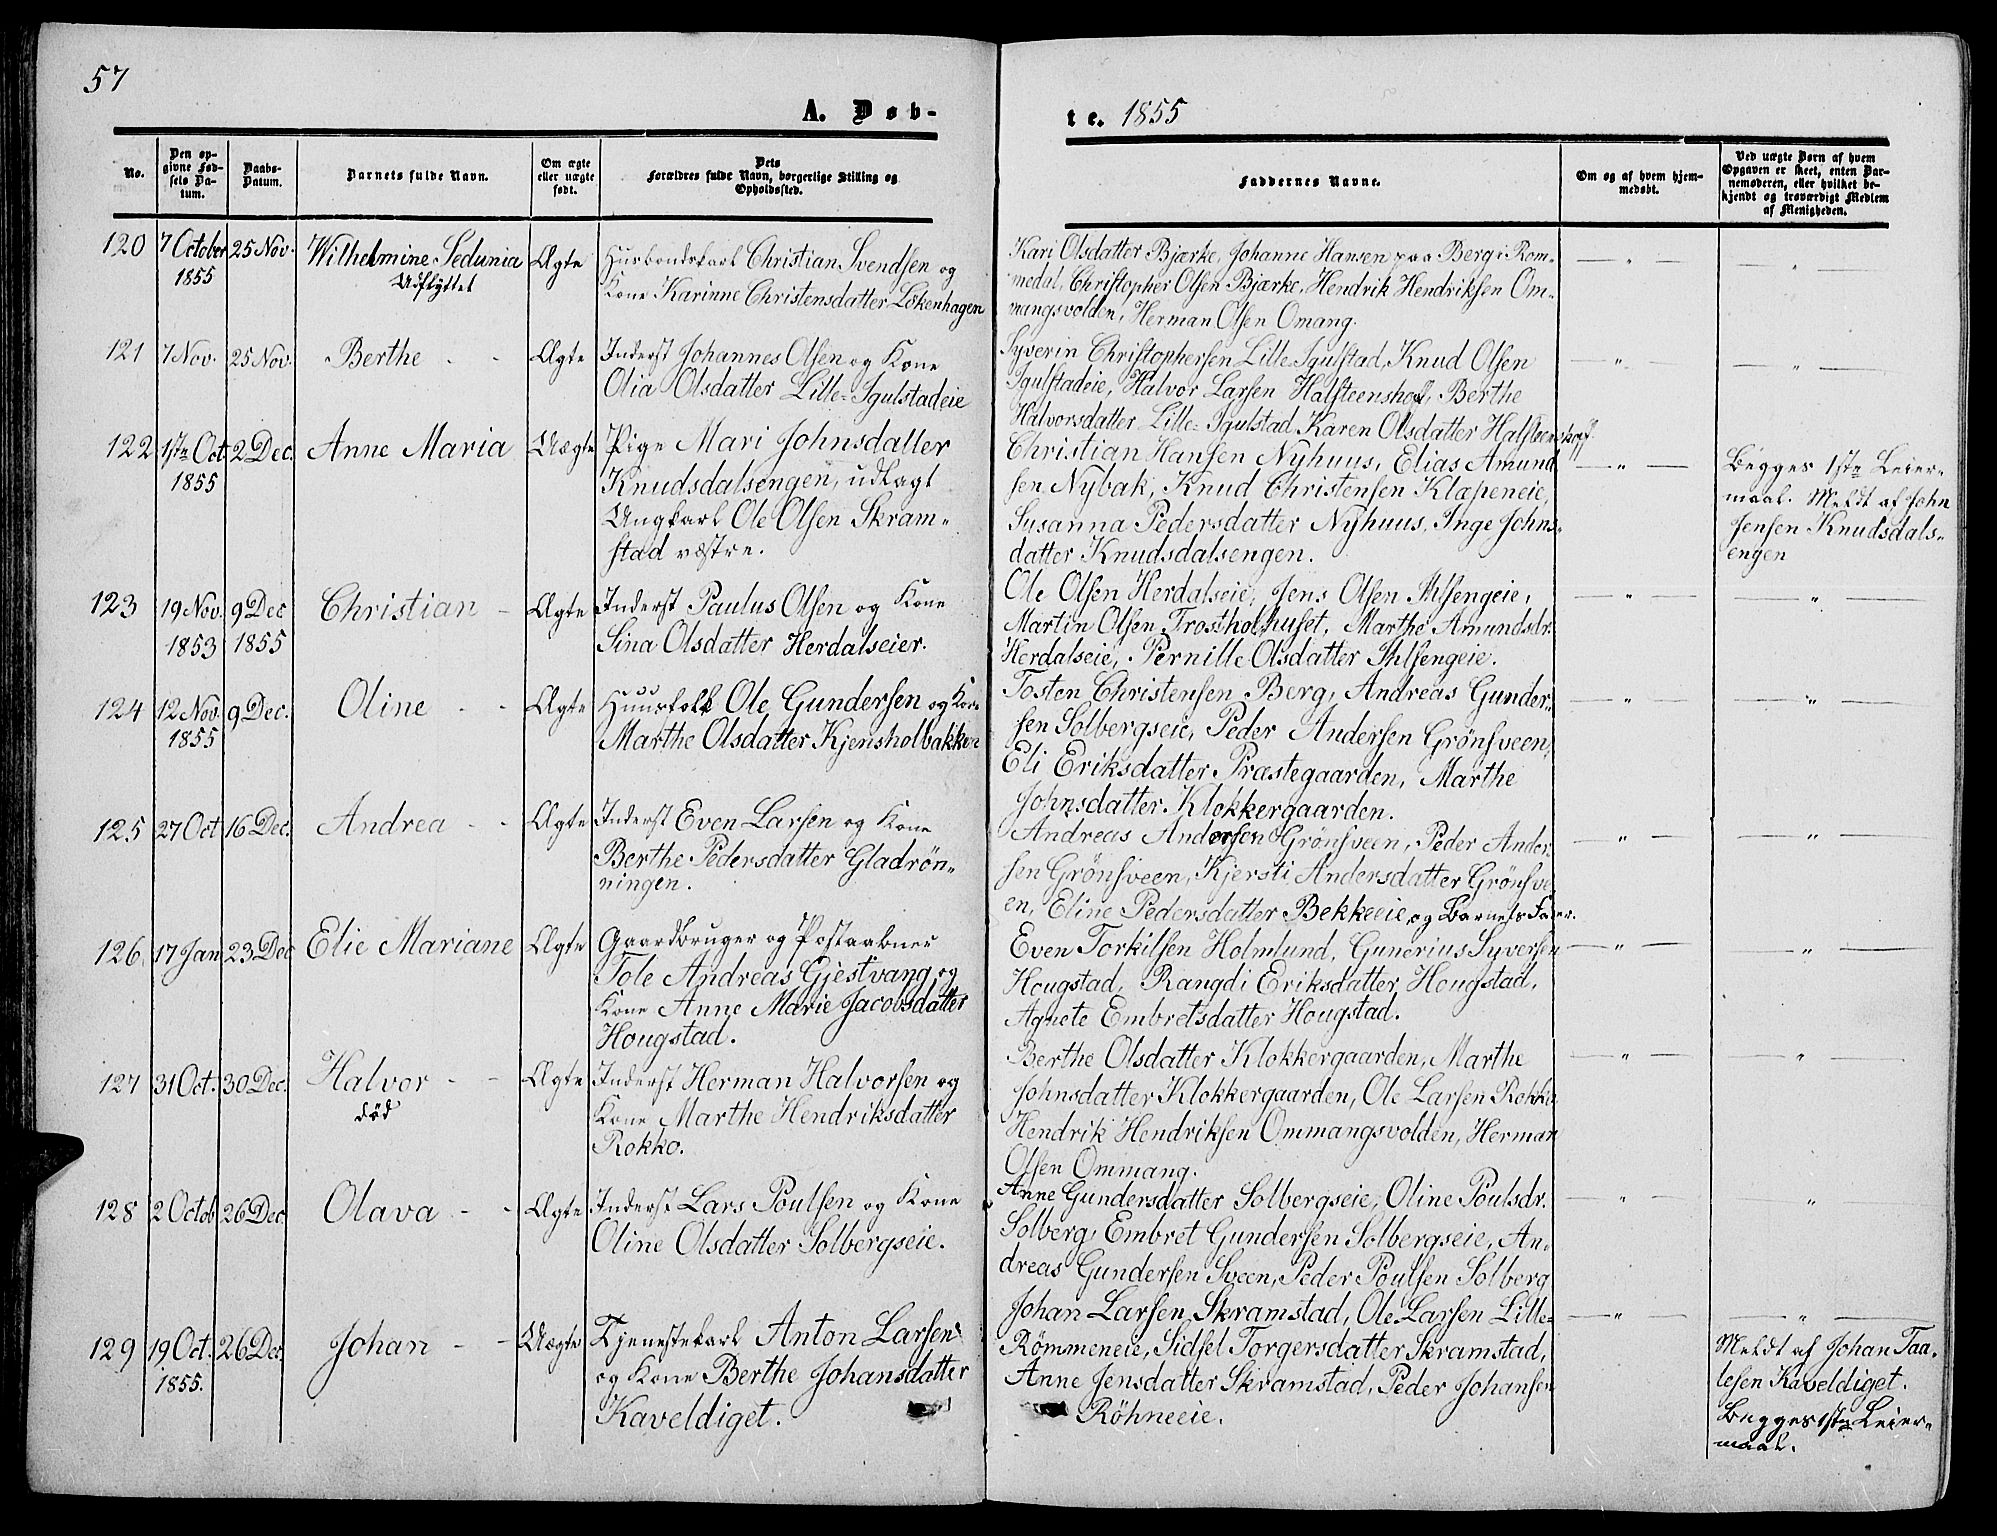 57
A. Døb-
te. 1855
No.
Den op-
givne Fød-
sels Da-
tum.
Daabs-
Datum.
Barnets fulde Navn.
Om ægte
eller uægte
født.
Dets
Forældres fulde Navn, borgerlige Stilling og
Opholdssted.
Faddernes Navne.
Om og af hvem hjem-
medøbt.
Ved uægte Børn af hvem
Opgaven er skeet, enten Bar-
nemoderen, eller hvilket be-
kjendt og troværdigt Medlem
af Menigheden.
120
7 October
1855
25 Nov.
Wilhelmine Sedunia
Udflyttet
Ægte
Husbondskarl Christian Svendsen og
Kone Karinne Christensdatter Løkenhagen
Kari Olsdatter Bjærke, Johanne Hansen paa Berg i Rom-
medal, Christopher Olsen Bjærke, Hendrik Hendriksen Om-
mangsvolden, Herman Olsen Omang.
— " —
— " —
121
7 Nov.
25 Nov.
Berthe - -
Ægte
Inderst Johannes Olsen og Kone
Olia Olsdatter Lille-Igulstadeie
Syverin Christophersen Lille Igulstad, Knud Olsen
Igulstadeie, Halvor Larsen Halsteenshof, Berthe
Halvorsdatter Lille-Igulstad Karen Olsdatter Halsteenshoff.
— " —
— " —
122
1ste Oct.
1855
2 Dec.
Anne Maria
Uægte
Pige Mari Johnsdatter
Knudsdalsengen, udlagt
Ungkarl Ole Olsen Skram-
stad vestre.
Christian Hansen Nyhuus, Elias Amund-
sen Nybak, Knud Christensen Klæpeneie,
Susanna Pedersdatter Nyhuus, Inge Johns-
datter Knudsdalsengen.
— " —
Begges 1ste Leier-
maal. Meldt af John
Jensen Knudsdals-
engen
123
19 Nov.
1853
9 Dec
1855
Christian -
Ægte
Inderst Paulus Olsen og Kone
Sina Olsdatter Herdalseier.
Ole Olsen Herdalseie, Jens Olsen Ahlsengeie,
Martin Olsen Trostholhuset, Marthe Amundsdr.
Herdalseie, Pernille Olsdatter Ahlsengeie.
— " —
— " —
124
12 Nov.
1855
9 Dec.
Oline - -
Ægte
Huusfolk Ole Gundersen og Kone
Marthe Olsdatter Kjensholbakken
Tosten Christensen Berg, Andreas Gunder-
sen Solbergseie, Peder Andersen Grönsveen,
Eli Eriksdatter Præstegaarden, Marthe
Johnsdatter Klokkergaarden.
— " —
— " —
125
27 Oct
16 Dec.
Andrea - -
Ægte
Inderst Even Larsen og Kone
Berthe Pedersdatter Gladrön-
ningen.
Andreas Andersen Grönsveen, Peder Ander-
sen Grönsveen, Kjersti Andersdatter Grönsve-
en, Eline Pedersdatter Bekkeeie og Barnets Fader.
— " —
— " —
126
17 Jan
23 Dec
Elie Mariane
Ægte
Gaardbruger og Postaabner
Tole Andreas Gjestvang og
Kone Anne Marie Jacobsdatter
Hougstad.
Even Torkilsen Holmlund, Gunerius Syversen
Hougstad, Rangdi Eriksdatter Hougstad,
Agnete Embretsdatter Hougstad.
— " —
— " —
127
31 Oct.
30 Dec.
Halvor - -
død
Ægte
Inderst Herman Halvorsen og
Kone Marthe Hendriksdatter
Rokko.
Berthe Olsdatter Klokkergaarden, Marthe
Johnsdatter Klokkergaarden, Ole Larsen Rokko
Hendrik Hendriksen Ommangsvolden, Herman
Olsen Ommang.
— " —
— " —
128
2 Octob
26 Dec.
Olava - -
Ægte
Inderst Lars Poulsen og Kone
Oline Olsdatter Solbergseie.
Anne Gundersdatter Solbergseie, Oline Poulsdr.
Solberg, Embret Gundersen Solbergseie, An-
dreas Gundersen Sveen, Peder Poulsen Solberg
— " —
"
129
19 Oct.
1855.
26 Dec.
Johan - -
Uægte
Tjenestekarl Anton Larsen
og Kone Berthe Johansdatter
Kaveldiget.
Johan Larsen Skramstad, Ole Larsen Lille-
Römmeneie, Sidsel Torgersdatter Skramstad,
Anne Jensdatter Skramstad, Peder Johansen
Röhneeie.
— " —
— " —
Meldt af Johan Taa-
lesen Kaveldiget.
Begges 1ste Leier-
maal.